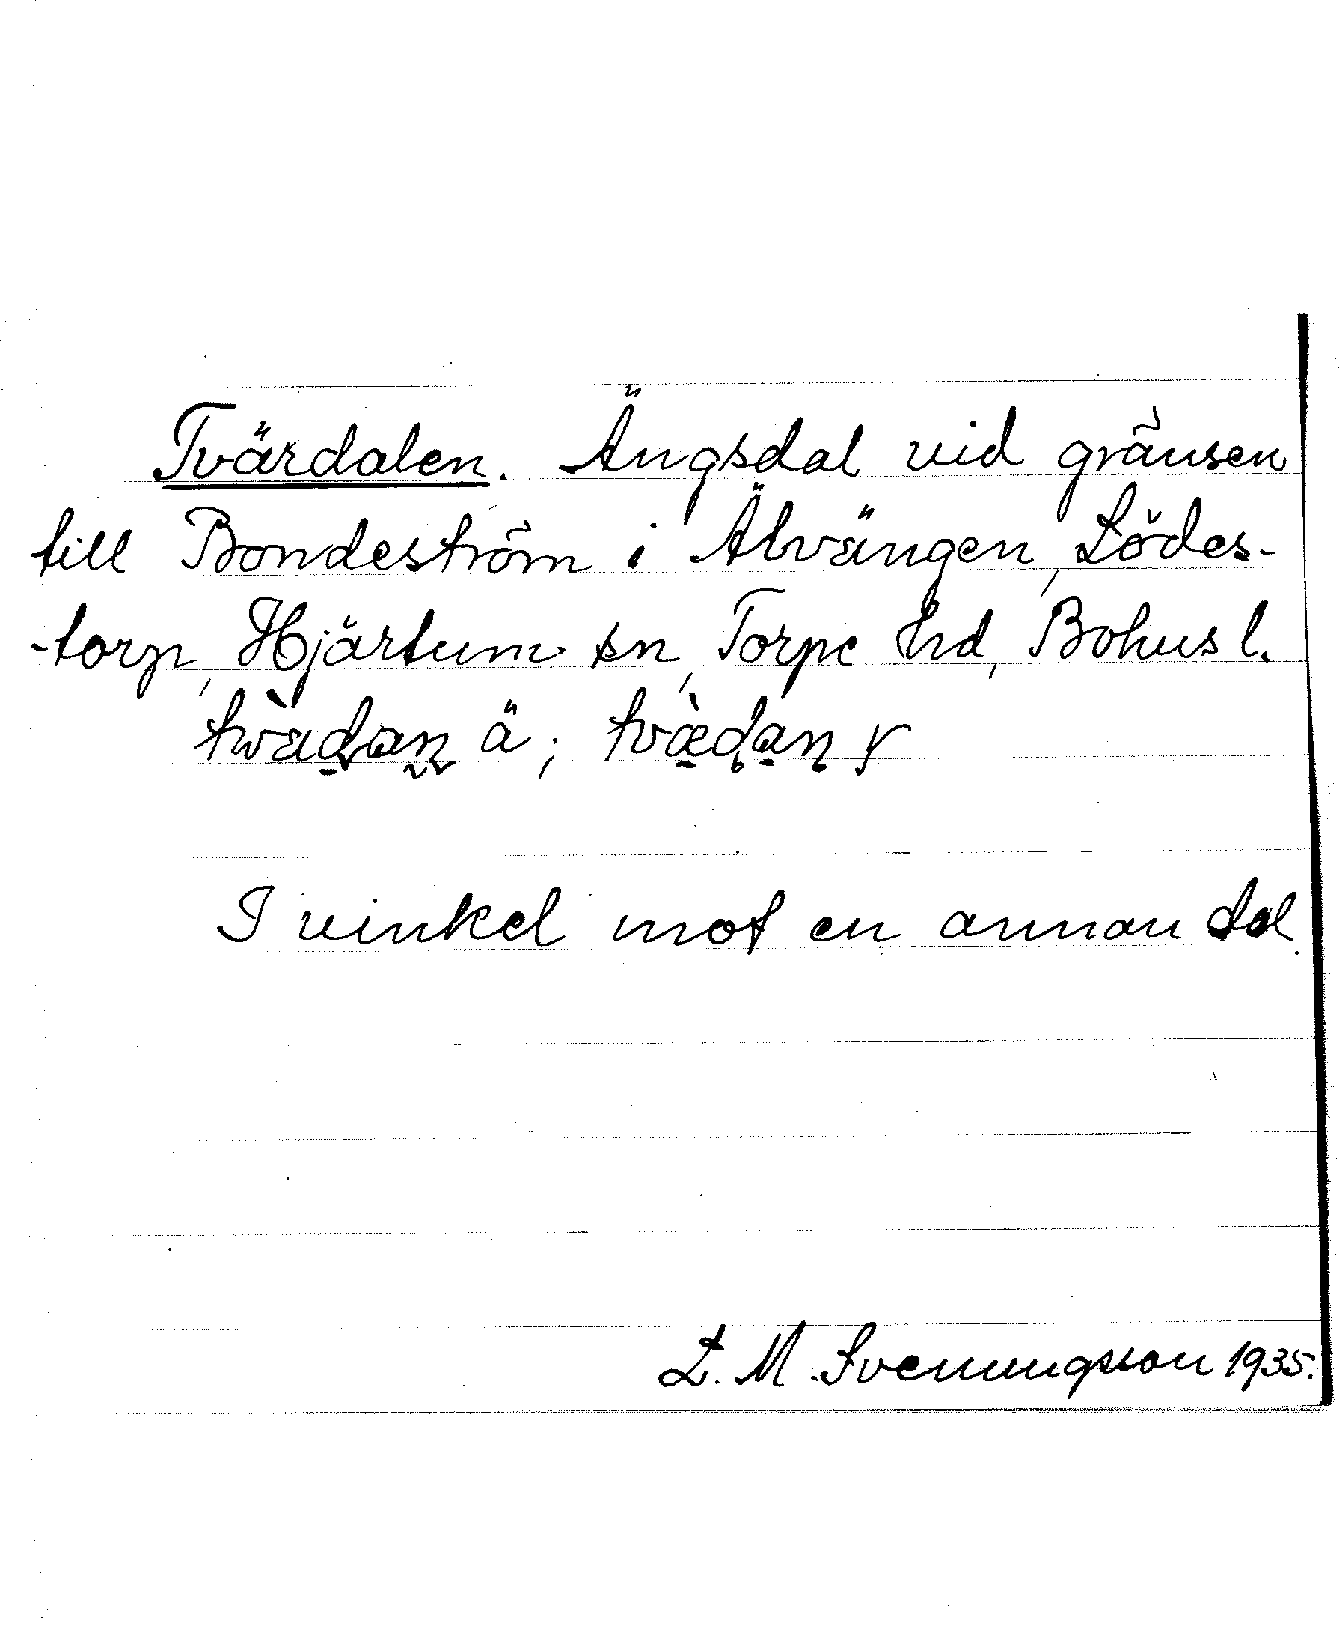 Tvärdalen. Ängsdal vid gränsen
till Bondeström i Älvängen, Lödes-
-torp, Hjärtum sn, Torpe hd, Bohusl.
ä; y
I vinkel mot en annan dal.
L. M. Svenungsson 1935.